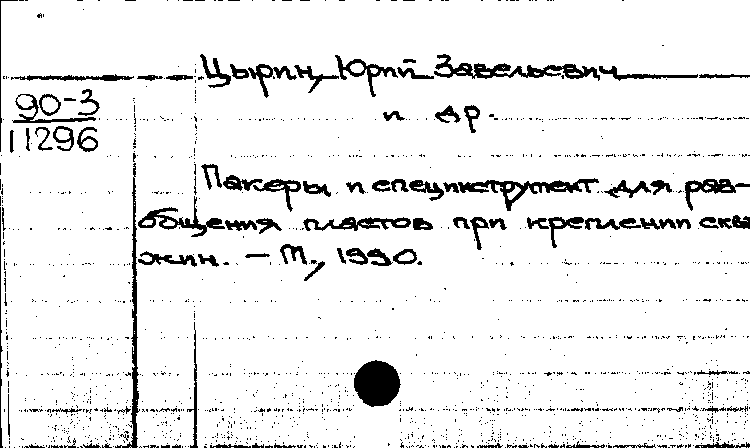 Цырин, Юрий Завельевич
90-3
11296
и др.
Пакеры и специнструмент для раз-
общения пластов при креплении сква
жин. — М., 1990.